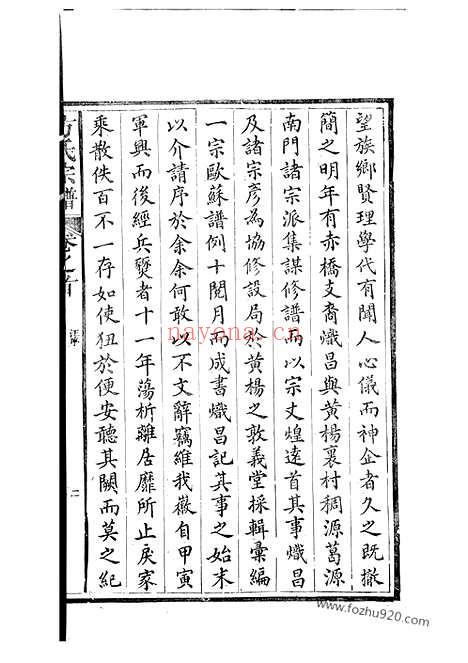 望族鄉賢理學代有聞人心儀而神企者久之既撤
簡之明年有赤橋支裔熾昌與黃楊裏村稠源葛源
南門諸宗派集謀修譜而以宗丈煌遠首其事熾昌
及諸宗彥為協修設局於黃楊之敦義堂採輯彙編
一宗歐蘇譜例十閱月而成書熾昌記其事之始末
以介請序於余余何敢以不文辭竊維我徽自甲寅
軍興而後經兵燹者十一年蕩析離居靡所止戾家
乘散佚百不一存如使狃於便安聽其闕而莫之紀
方氏宗譜
卷之首
二
nayona.cn
www.fozhu920.com